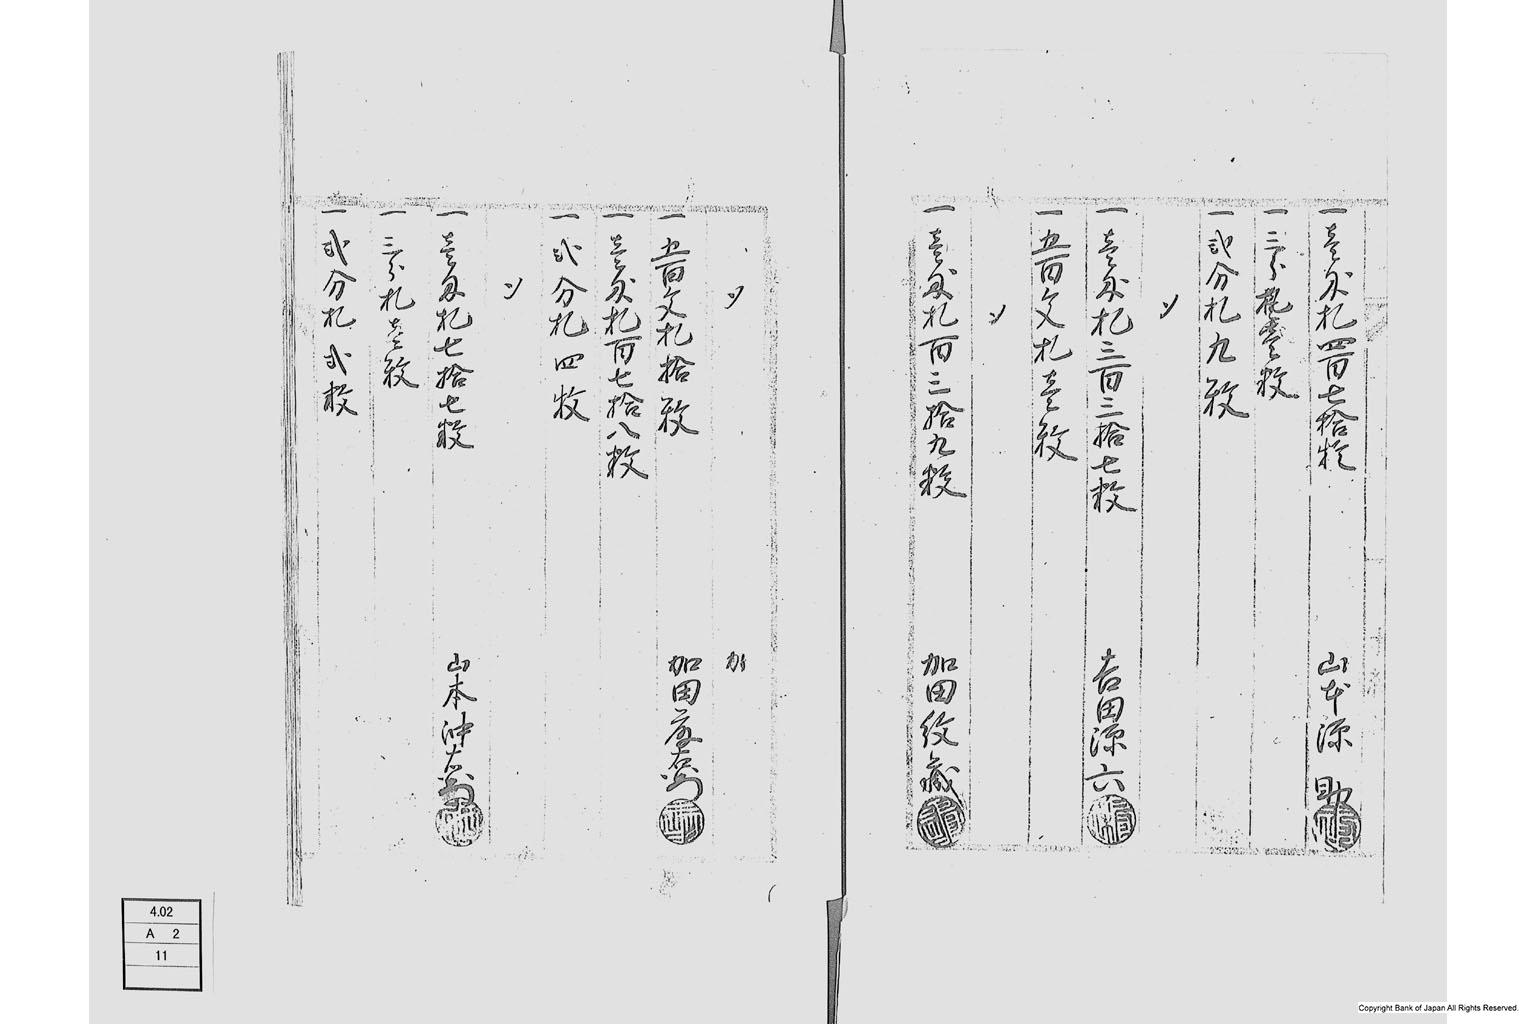 一 壱匁札四百七拾枚 山本源助
一 三分札壱枚
一 弐分札九枚
〆
一 壱匁札三百三拾七枚 吉田源六
一 五百文札壱枚
〆
一 壱匁札百三拾九枚 加田紋蔵
〆
一 五百文札拾枚 加田 右衛門
一 壱匁札百七拾八枚
一 弐分札四枚
〆
一 壱匁札七拾七枚 山本沖右衛門
一 三分札壱枚
一 弐分札弐枚
4.02
A 2
11
Copyright Bank of Japan All Rights Reserved.